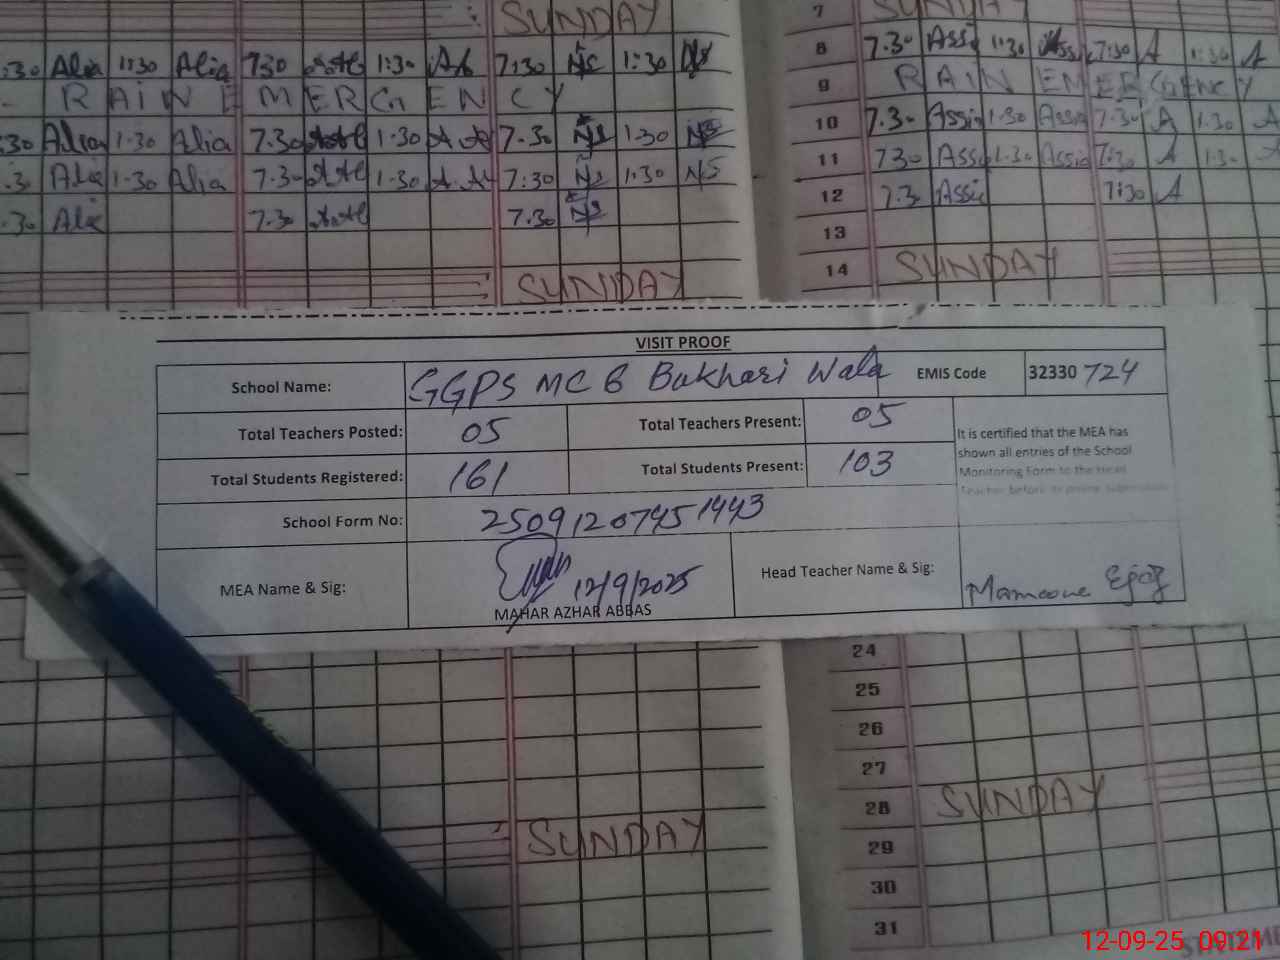 SUNDAY
:30 Alia 1:30 Alia 7:30 1:30 7:30 NS 1:30 NS
RAIN EMERGENCY
:30 Alia 1.30 Alia 7.30 1.30 A.A 7.30 NS 1.30 NS
.30 Alia 1.30 Alia 7.30 1.30 A.A 7:30 NS 1.30 NS
.30 Alia 7.30 7.30 NS
SUNDAY
7 SUNDAY
8 7.30 Assi 1:30 Assi 7:30 A 1:30 A
9 RAIN EMERGENCY
10 7.30 Assia 1.30 Assia 7.30 A 1.30 A
11 7 30 Assia 1.30 Assia 7:30 A 1.30 A
12 7.30 Assi 7:30 A
13
14 SUNDAY
VISIT PROOF
School Name: GGPS MC 6 Bukhari Wala EMIS Code 32330 724
Total Teachers Posted: 05 Total Teachers Present: 05
Total Students Registered: 161 Total Students Present: 103
It is certified that the MEA has
shown all entries of the School
Monitoring Form to the Head
Teacher before
School Form No: 25091207451443
MEA Name & Sig: 12/9/2025
MAHAR AZHAR ABBAS
Head Teacher Name & Sig: Mamoona Ejaz
24
25
26
27
28 SUNDAY
29
30
31
SUNDAY
12-09-25 09:21